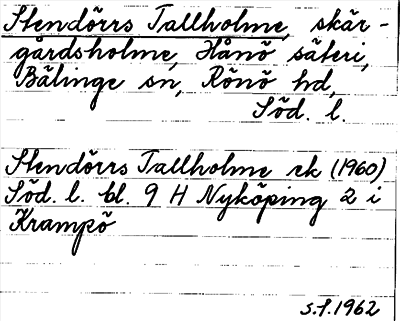 Stendörrs Tallholme, skär-
gårdsholme, Hånö säteri,
Bälinge sn, Rönö hd,
Söd. l.
Stendörrs Tallholme ek (1960)
Söd. l. bl. 9 H Nyköping 2 i
Krampö
S.S. 1962